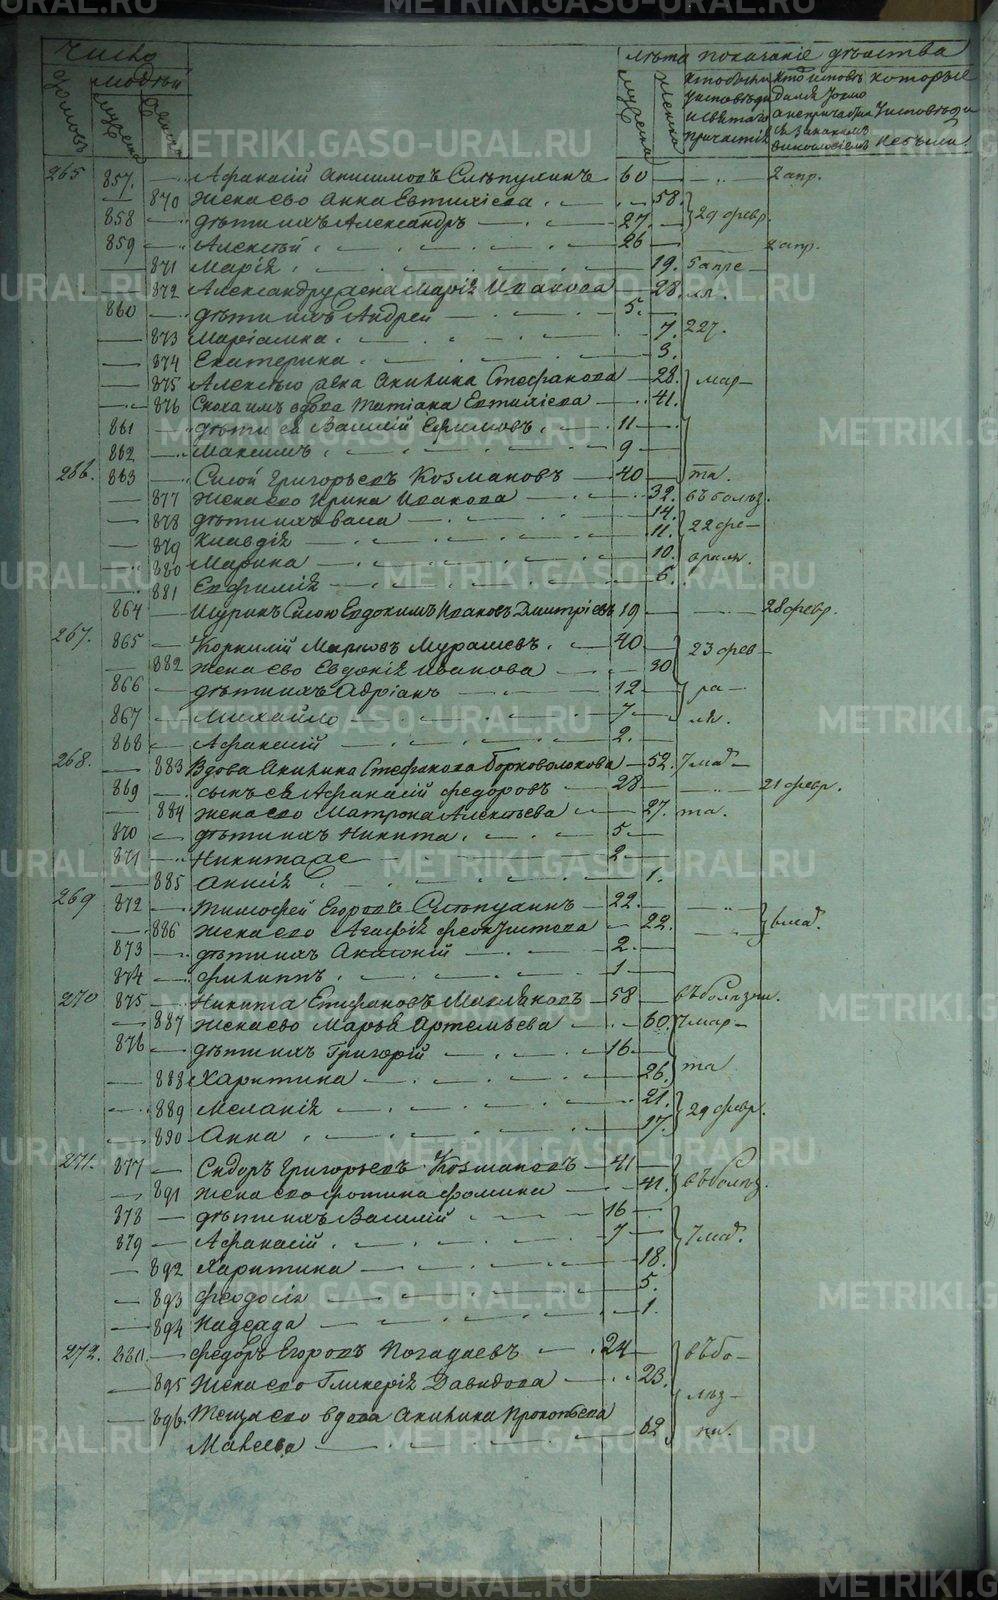 Число
лѣта показаніе дѣйства
Домовъ людей мужеска женска
265 857. Афанасій Анисимовъ Слѣпухинъ 60 2 апр.
870 жена его Анна Евтихіева 58.
858 дѣти ихъ Александръ 27. 29 февр.
859 Алексѣй 26 2 апр.
871 Марія 19. 5 апре
872 Александру жена Марія Иванова 28. ля.
860 дѣти ихъ Андрей 5.
873 Маріамна 7. 227.
874 Екатерина 3.
875 Алексѣю жена Акилина Стефанова 28. мар
876 Сноха имъ вдова Татіана Евтихіева 41.
861 дѣти ея Василій Ефимовъ 11
862 Максимъ 9
266. 863 Сисой Григорьевъ Козмановъ 40 та.
877 жена его Ирина Иванова 32. въ болѣз.
878 дѣти ихъ Васа 14.
879 Клавдія 11. 22 фе
880 Марина 10. враля.
881 Евфимія 6.
864 Шуринъ Сисою Евдокимъ Ивановъ Дмитріевъ 19 28 февр.
267. 865 Корнилій Марковъ Мурашевъ 40
882 жена его Евдокія Иванова 30 23 фев
866 дѣти ихъ Адріанъ 12 ра
867 Михайло 7 ля.
868 Афанасій 2.
268. 883 Вдова Акилина Стефанова Борноволокова 52. 7 мар
869 сынъ ея Афанасій Федоровъ 28 21 февр.
884 жена его Матрона Алексѣева 27. та.
870 дѣти ихъ Никита 5
871 Никита же 2.
885 Анисія 1.
269 872 Тимофей Егоровъ Слѣпухинъ 22.
886 жена его Агафія Феоктистова 22. 6 мар.
873 дѣти ихъ Анастасій 2.
874 Филиппъ 1
270 875 Никита Епифановъ Масляковъ 58 въ болѣзни.
887 жена его Марѳа Артемьева 60. 7 мар
876 дѣти ихъ Григорій 16 та
888 Харитина 26.
889 Меланія 21. 29 февр.
890 Анна 17.
271. 877 Сидоръ Григорьевъ Козмановъ 41
891 жена его Фотина Фомина 41. въ болѣз.
878 дѣти ихъ Василій 16
879 Афанасій 7 7 мар.
892 Харитина 18.
893 Феодосія 5.
894 Надежда 1.
272. 880. Федоръ Егоровъ Погадаевъ 24 въ бо
895 жена его Гликерія Давидова 23. лѣз
896. Теща его вдова Акилина Прокопьева
Макеева 62 ни.
METRIKI.GASO-URAL.RU